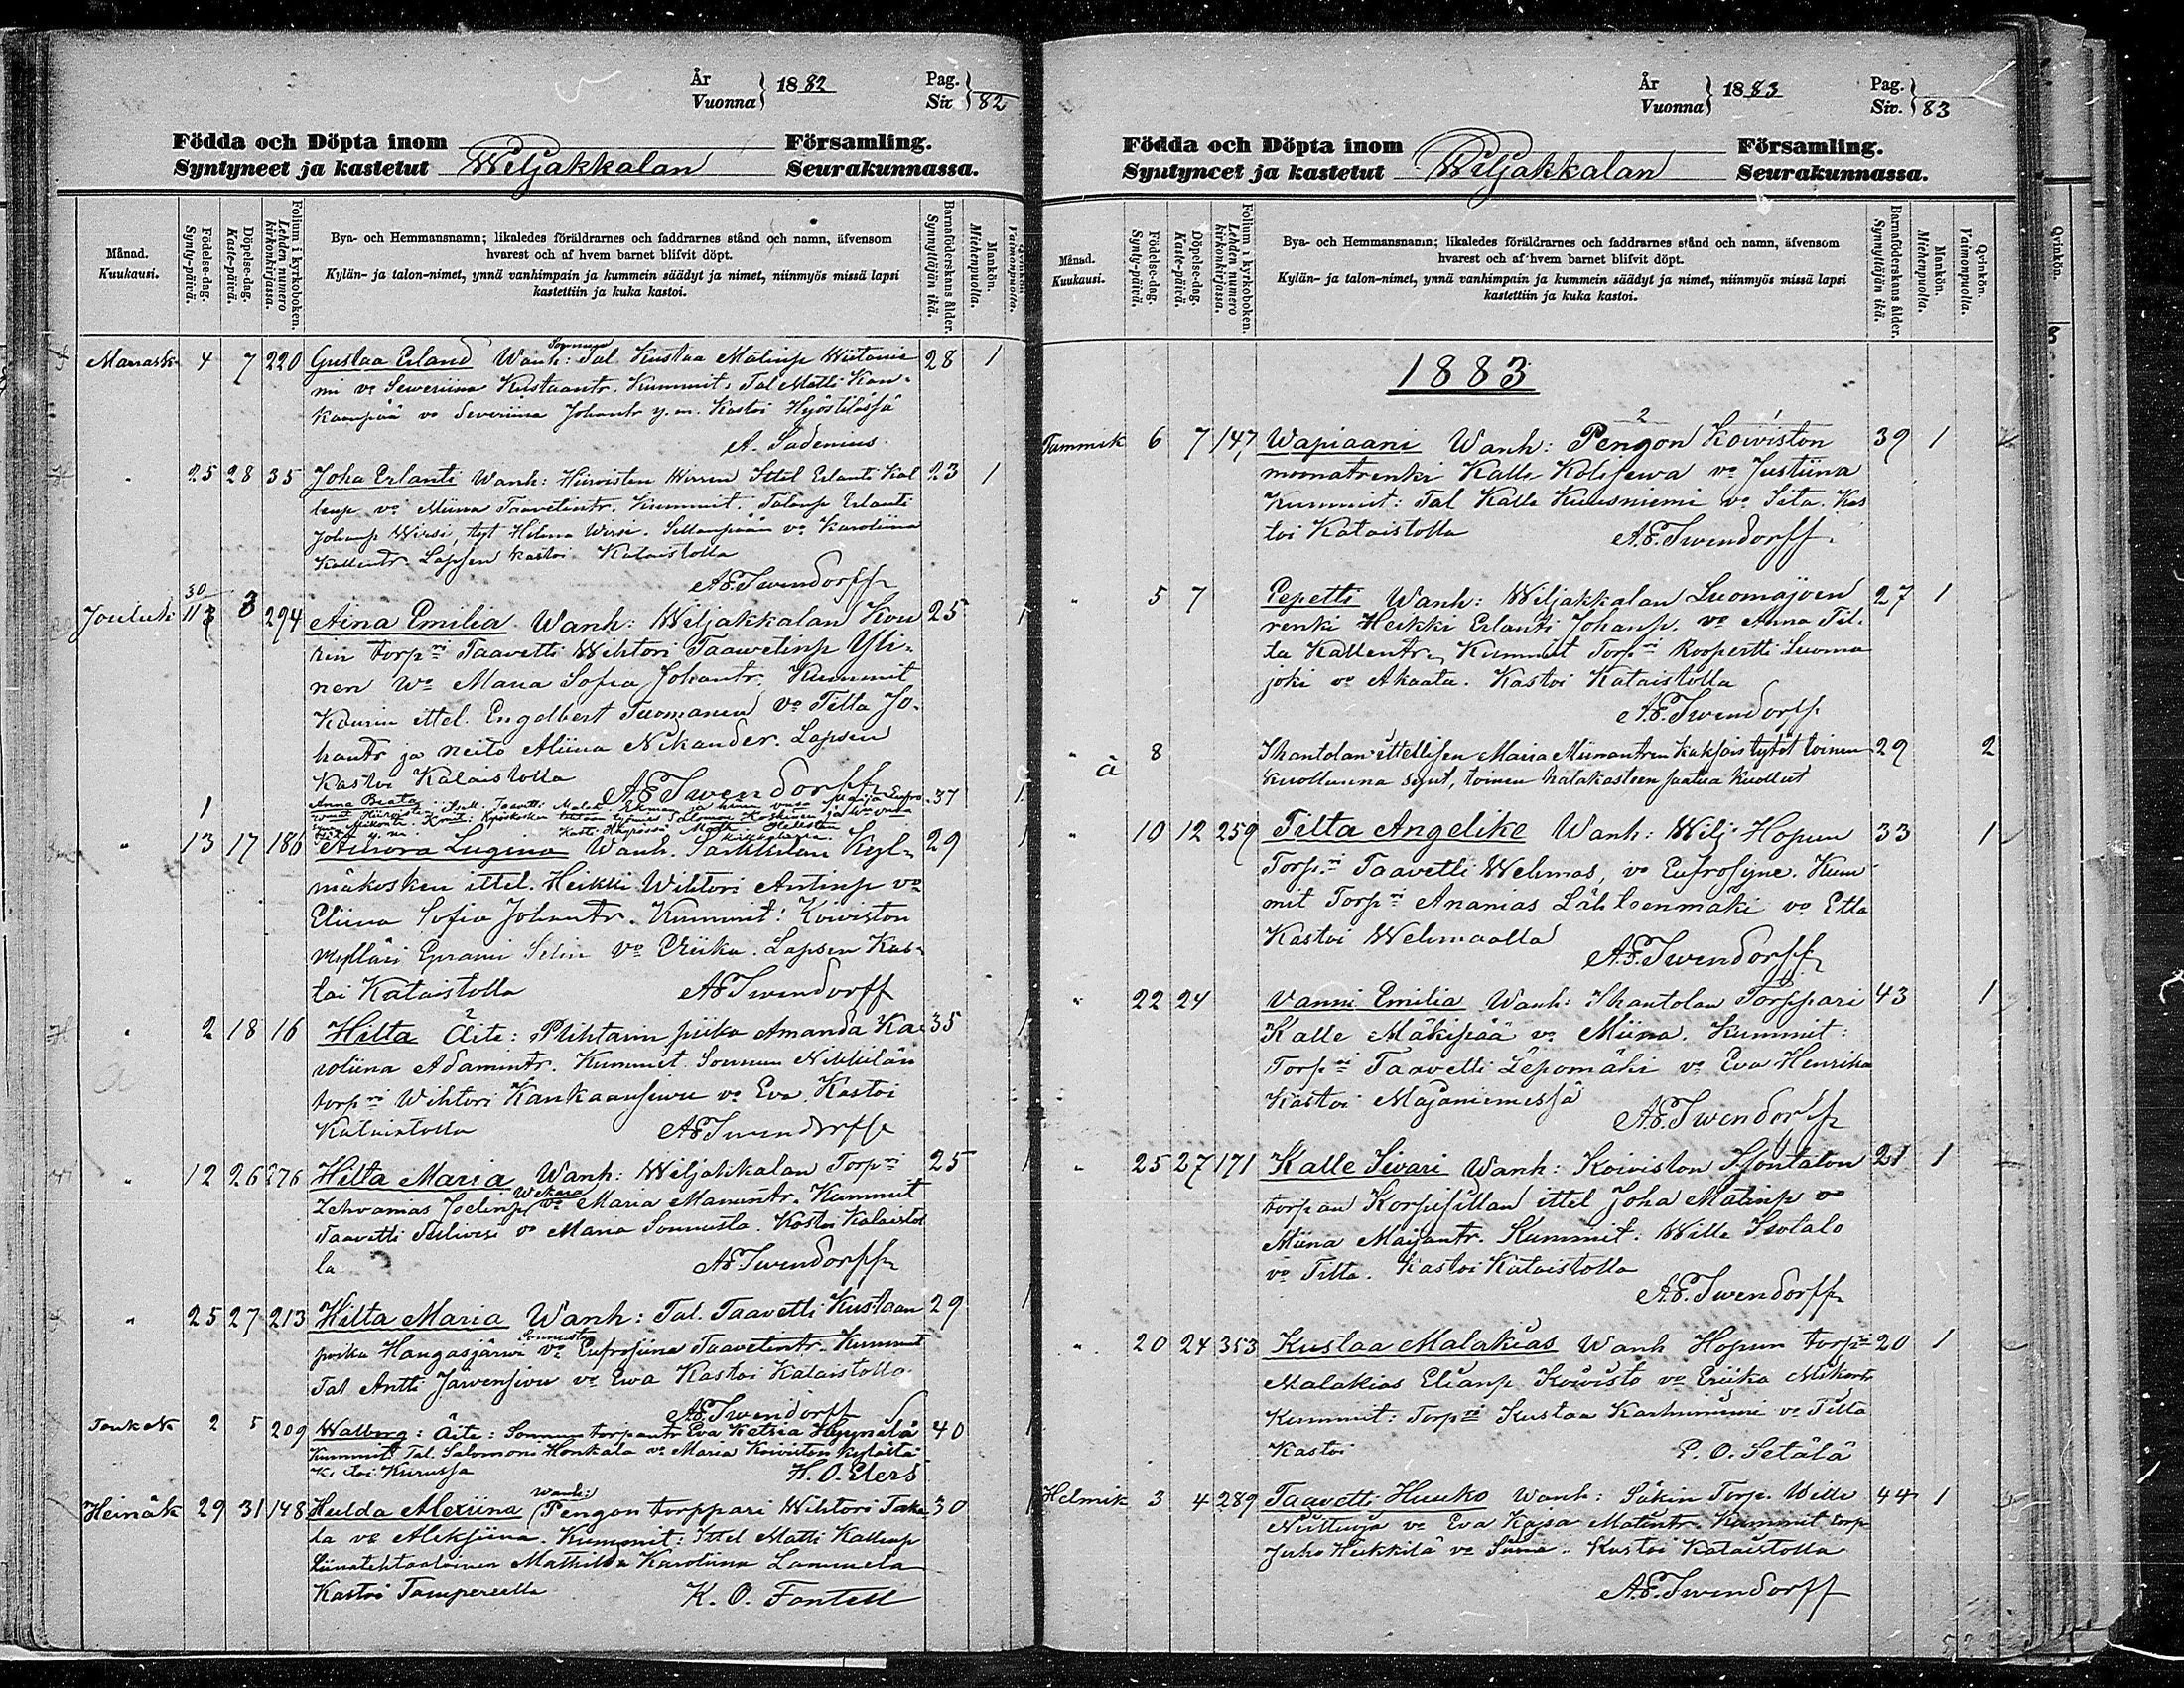 År
Vuonna } 1882
Pag.
Siv. } 82
Födda och Döpta inom Församling.
Syntyneet ja kastetut Wiljakkalan Seurakunnassa.
Månad.
Kuukausi.
Födelse-dag.
Synty-päivä.
Döpelse-dag.
Kaste-päivä.
Folium i kyrkoboken.
Lehden numero
kirkonkirjassa.
Bya- och Hemmansnamn; likaledes föräldrarnes och faddrarnes stånd och namn, äfvensom
hvarest och af hvem barnet blifvit döpt.
Kylän- ja talon-nimet, ynnä vanhimpain ja kummein säädyt ja nimet, niinmyös missä lapsi
kastettiin ja kuka kastoi.
Barnaföderskans ålder.
Synnyttäjän ikä.
Mankön.
Miehenpuolia.
Qvinkön.
Vaimonpuolia.
Marrask. 4 7 220 Gustaa Erland Wanh: Tal. Kustaa Matinp 28 1
mi vo Seweriina Kustaantr. Kummit: Tal Matti Kan-
kaanpää vo Severiina Johantr y.m. Kastoi Hyöstilässä
A. Sadenius.
" 25 28 35 Joha Erlanti Wanh: Hirvisten Ittel Erlanti Kal 23 1
lenp vo Miina Taavetintr. Kummit. Erlanti
Johanp Wirsi, tyt Hilma Wirsi. vo Karoliina
Kallentr. Lapsen kastoi Kataistolla
A.F. Swendorff
30
Jouluk 11 3 294 Aina Emilia Wanh: Wiljakkalan 25 1
torp:ri Taavetti Wihtori Taawetinp Yli-
nen Wo Maria Sofia Johantr. Kummit
ittel. Engelbert Tuomanen vo Tilta Jo-
hantr ja neito Miina Nikander. Lapsen
Kastoi Kataistolla A.F. Swendorff
1 Anna Beata 37 1
" 13 17 186 Aurora Lugina Wanh. Kyl- 29 1
mäkosken ittel. Heikki Wihtori Antinp vo
Eliina Sofia Johantr. Kummit: Koiviston
mylläri Eprami Selin vo Eriika. Lapsen Kas-
toi Kataistolla A.F. Swendorff
" 2 18 16 Hilta Äiti: piika Amanda Ka- 35 1
roliina Adamintr. Kummit. Sonnun Nikkilän
torp:ri Wihtori Kankaansiwu vo Eva. Kastoi
Kataistolla A.F. Swendorff
" 12 26 276 Hilta Maria Wanh: Wiljakkalan Torp:ri 25 1
Joelinp vo Maria Manuntr. Kummit
Taavetti vo Maria Sonnusta. Kastoi Kataistol
la A.F. Swendorff
" 25 27 213 Hilta Maria Wanh: Tal. Taavetti Kustaan 29 1
poika Hangasjärwi vo Eufrosiina Taavetintr. Kummit
Tal Antti Järvensivu vo Ewa Kastoi Kataistolla
A.F. Swendorff
Toukok 2 5 209 Walborg: Äiti: Sonnun torpantr Eva Katria Hyynelä 40 1
Kummit Tal. Salomoni Honkala vo Maria Koiviston kylältä
Kastoi Kurussa H. O. Elers
Heinäk 29 31 148 Hulda Alexiina (Wanh:) Pengon torppari Wihtori Taka- 30 1
la vo Aleksiina. Kummit: Ittel Matti Kallenp
Mathilda Karoliina Lammela
Kastoi Tampereella K. O. Fontell
År
Vuonna } 1883
Pag.
Siv. } 83
Födda och Döpta inom Församling.
Syntyneet ja kastetut Wiljakkalan Seurakunnassa.
Månad.
Kuukausi.
Födelse-dag.
Synty-päivä.
Döpelse-dag.
Kaste-päivä.
Folium i kyrkoboken.
Lehden numero
kirkonkirjassa.
Bya- och Hemmansnamn; likaledes föräldrarnes och faddrarnes stånd och namn, äfvensom
hvarest och af hvem barnet blifvit döpt.
Kylän- ja talon-nimet, ynnä vanhimpain ja kummein säädyt ja nimet, niinmyös missä lapsi
kastettiin ja kuka kastoi.
Barnaföderskans ålder.
Synnyttäjän ikä.
Mankön.
Miehenpuolia.
Qvinkön.
Vaimonpuolia.
1883
2 1
Tammik 6 7 147 Wapiaani Wanh: Pengon Koiviston 39 1
muonatrenki Kalle vo Justiina
Kummit: Tal Kalle Kuusniemi vo Sita. Kas
toi Kataistolla A.F. Swendorff.
" 5 7 Pepetti Wanh: Wiljakkalan Luomajoen 27 1
renki Heikki Erlanti Johanp. vo Anna Til-
ta Kallentr. Kummit Torp:ri Roopertti Luoma
joki vo Akaata. Kastoi Kataistolla
A.F. Swendorff
" 8 Ihantolan ittellisen Maria Miinantren kaksois tytöt toinen 29 2
kuolluna synt, toinen hätäkasteen saatua kuollut
" 10 12 259 Tilta Angelike Wanh: Wilj Hopun 33 1
Torp:ri Taavetti Wehmas, vo Eufrosyne. Kum
mit Torp:ri Ananias Lähteenmäki vo Etla
Kastoi Wehmaalla A.F. Swendorff
" 22 24 Vanni Emilia Wanh: Ihantolan Torppari 43 1
Kalle Mäkipää vo Miina. Kummit:
Torp:ri Taavetti Lepomäki vo Eva Henrika
Kastoi Majaniemessä A.F. Swendorff
" 25 27 171 Kalle Sivari Wanh: Koiviston 21 1
torpan Korpisillan ittel Joha Matinp vo
Miina Majantr. Kummit: Wille Isotalo
vo Tilta. Kastoi Kataistolla
A.F. Swendorff
" 20 24 353 Kustaa Malakias Wanh Hopun torp:ri 20 1
Malakias Elianp Koivisto vo Eriika Mikontr
Kummit: Torp:ri Kustaa Karhuniemi vo Tilta
Kastoi P. O. Setälä
Helmik 3 4 289 Taavetti Huuko Wanh: Säkin Torp. Wille 44 1
vo Eva Kajsa Matintr. Kummit torp
Juho Heikkilä vo Kastoi Kataistolla
A.F. Swendorff